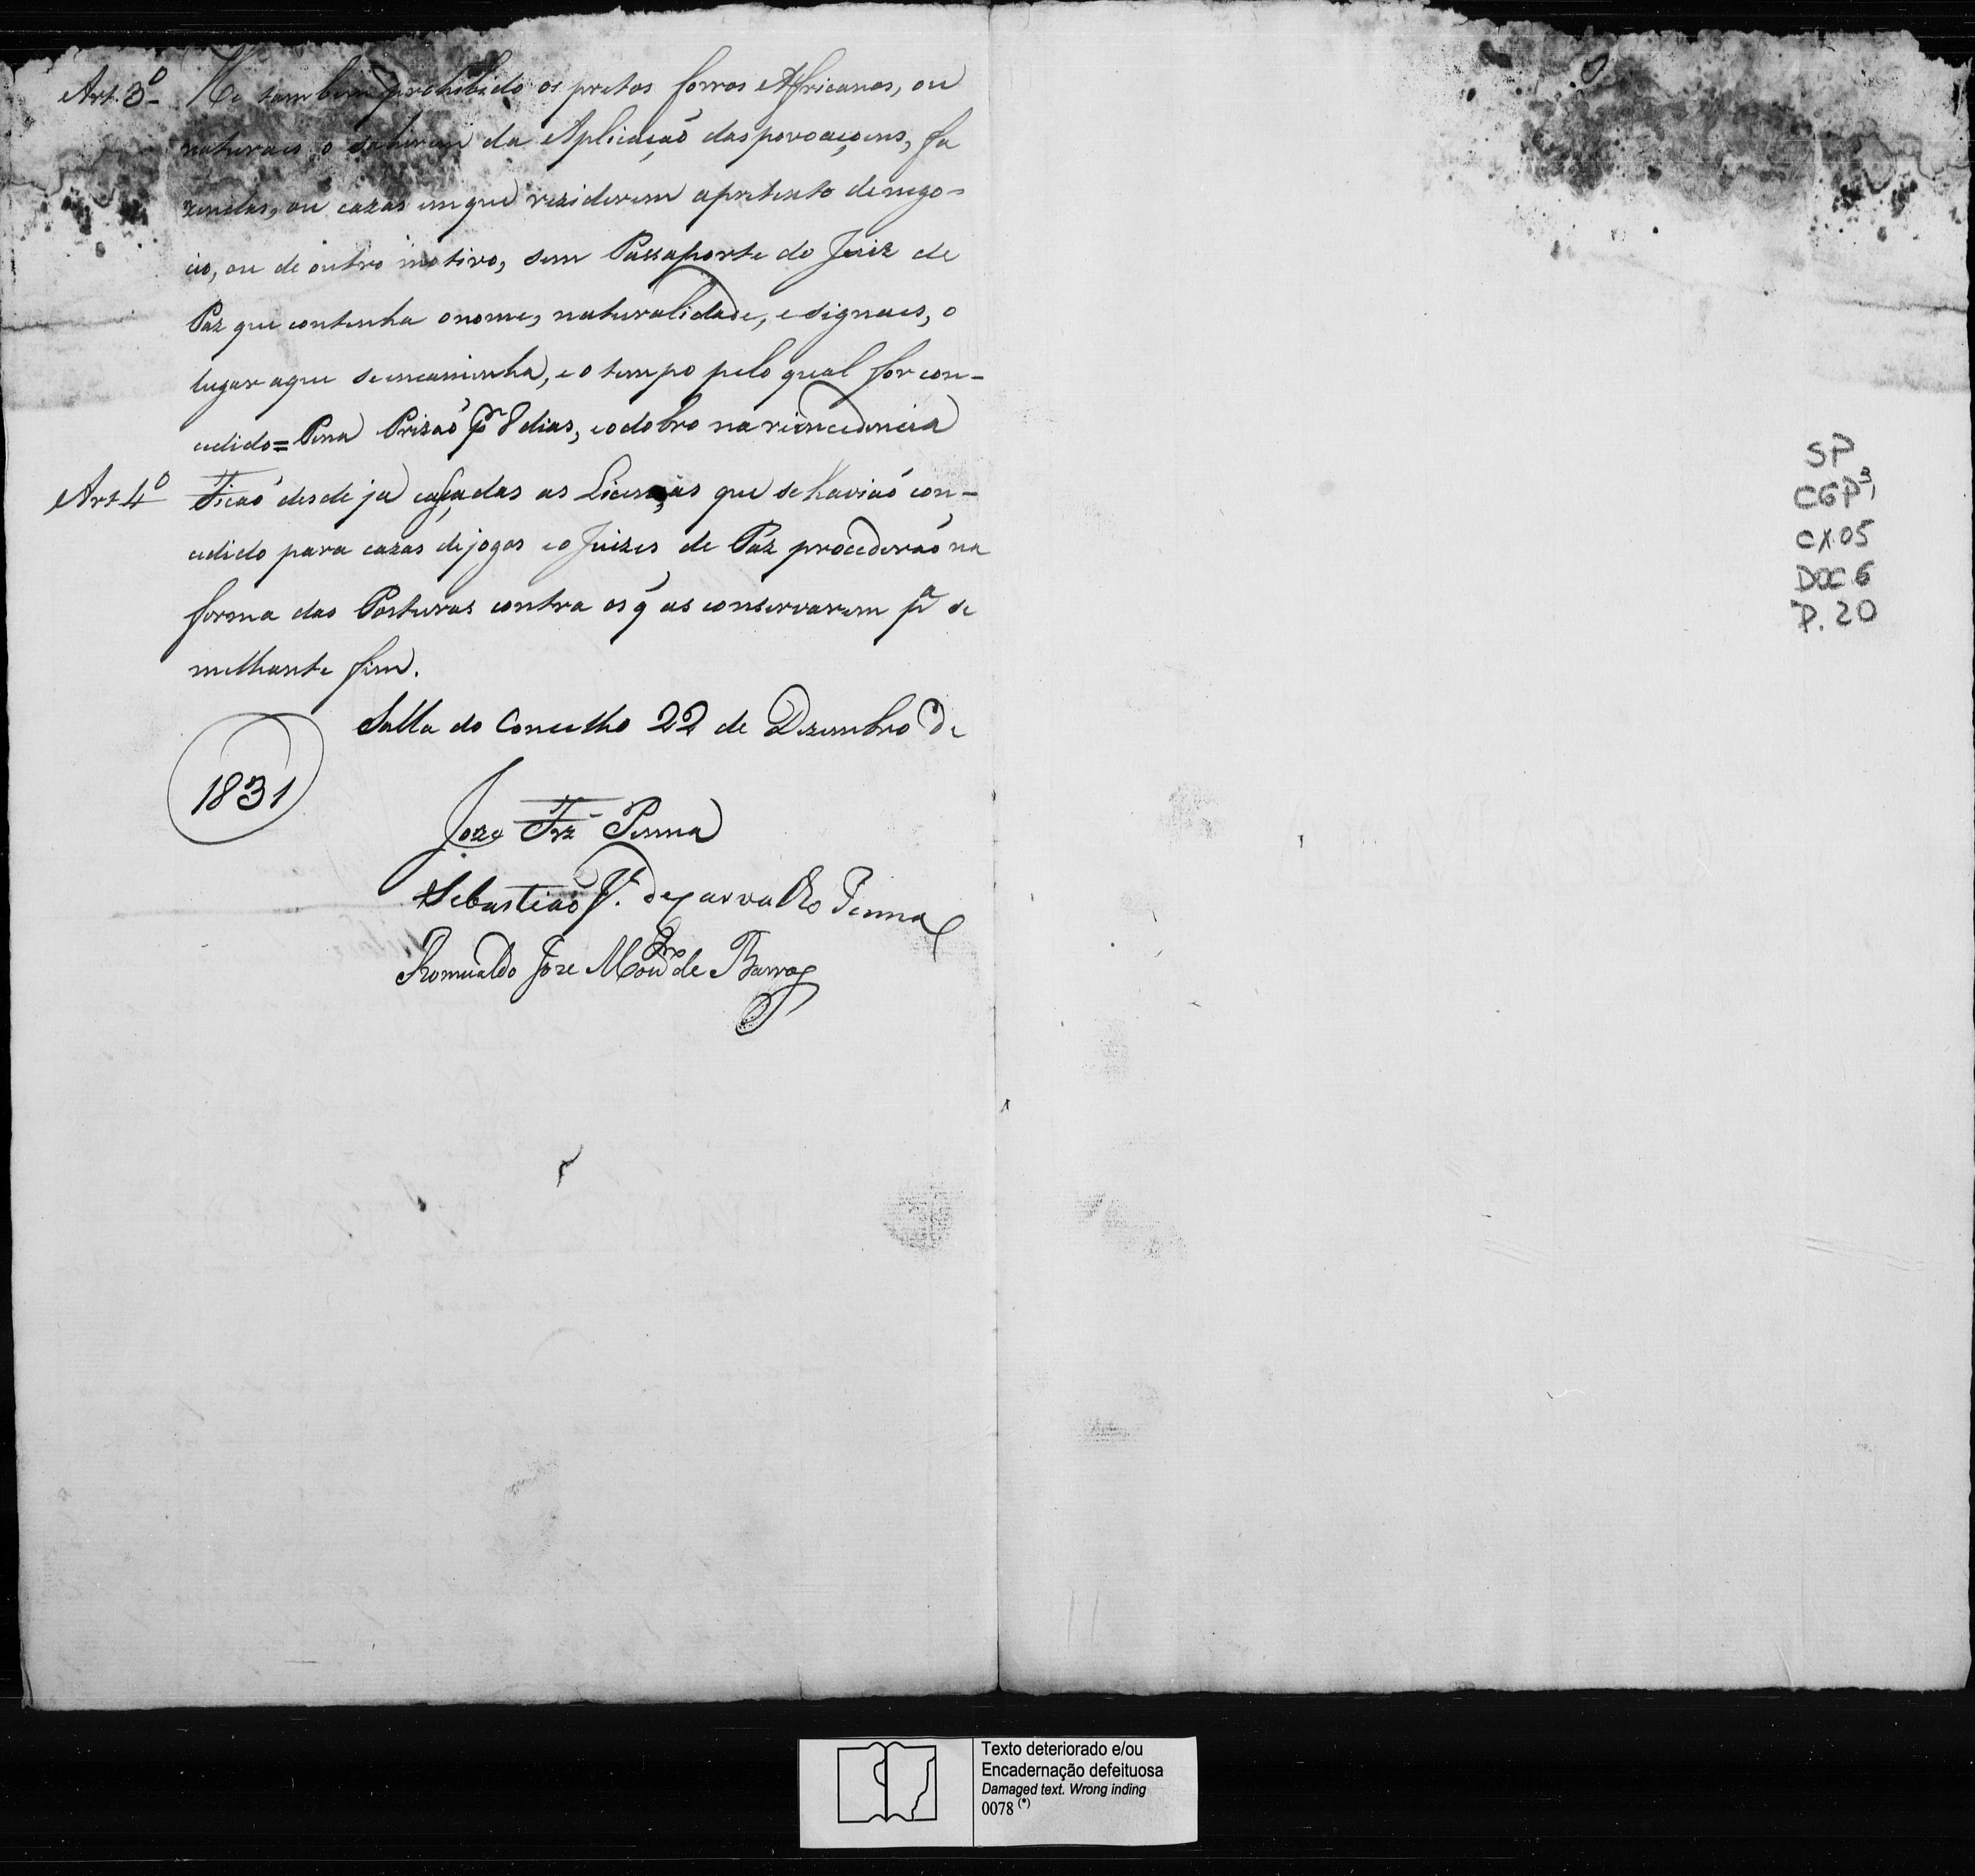 Art. 3º He tambem prohibido os pretos forros Africanos, ou
naturaes o sahirem da Aplicação das povoaçoens, fa
zendas, ou cazas em que rezidirem a pretexto de nego=
cio, ou de outro motivo, sem Passaporte do Juiz de
Paz que contenha o nome, naturalidade, e signaes, o
lugar a que se encaminha, e o tempo pelo qual for con-
cedido= Pena Prizaõ pr 8 dias, e o dobro na reincidencia
Art 4º Ficaõ desde ja cassadas as Licenças que se haviaõ con-
cedido para cazas de jogos e o Juizes de Paz procederaõ na
forma das Posturas contra os q̃ as conservarem pª se
melhante fim.
Salla do Concelho 22 de Dezembro de
1831
Joze Frz Penna
Sebastiaõ F. de Carvalho Penna
Romualdo Joze Montrº de Barros
SP
CGP3,
CX.05
DOC 6
P. 20
Texto deteriorado e/ou
Encadernação defeituosa
Damaged text. Wrong inding
0078 (*)